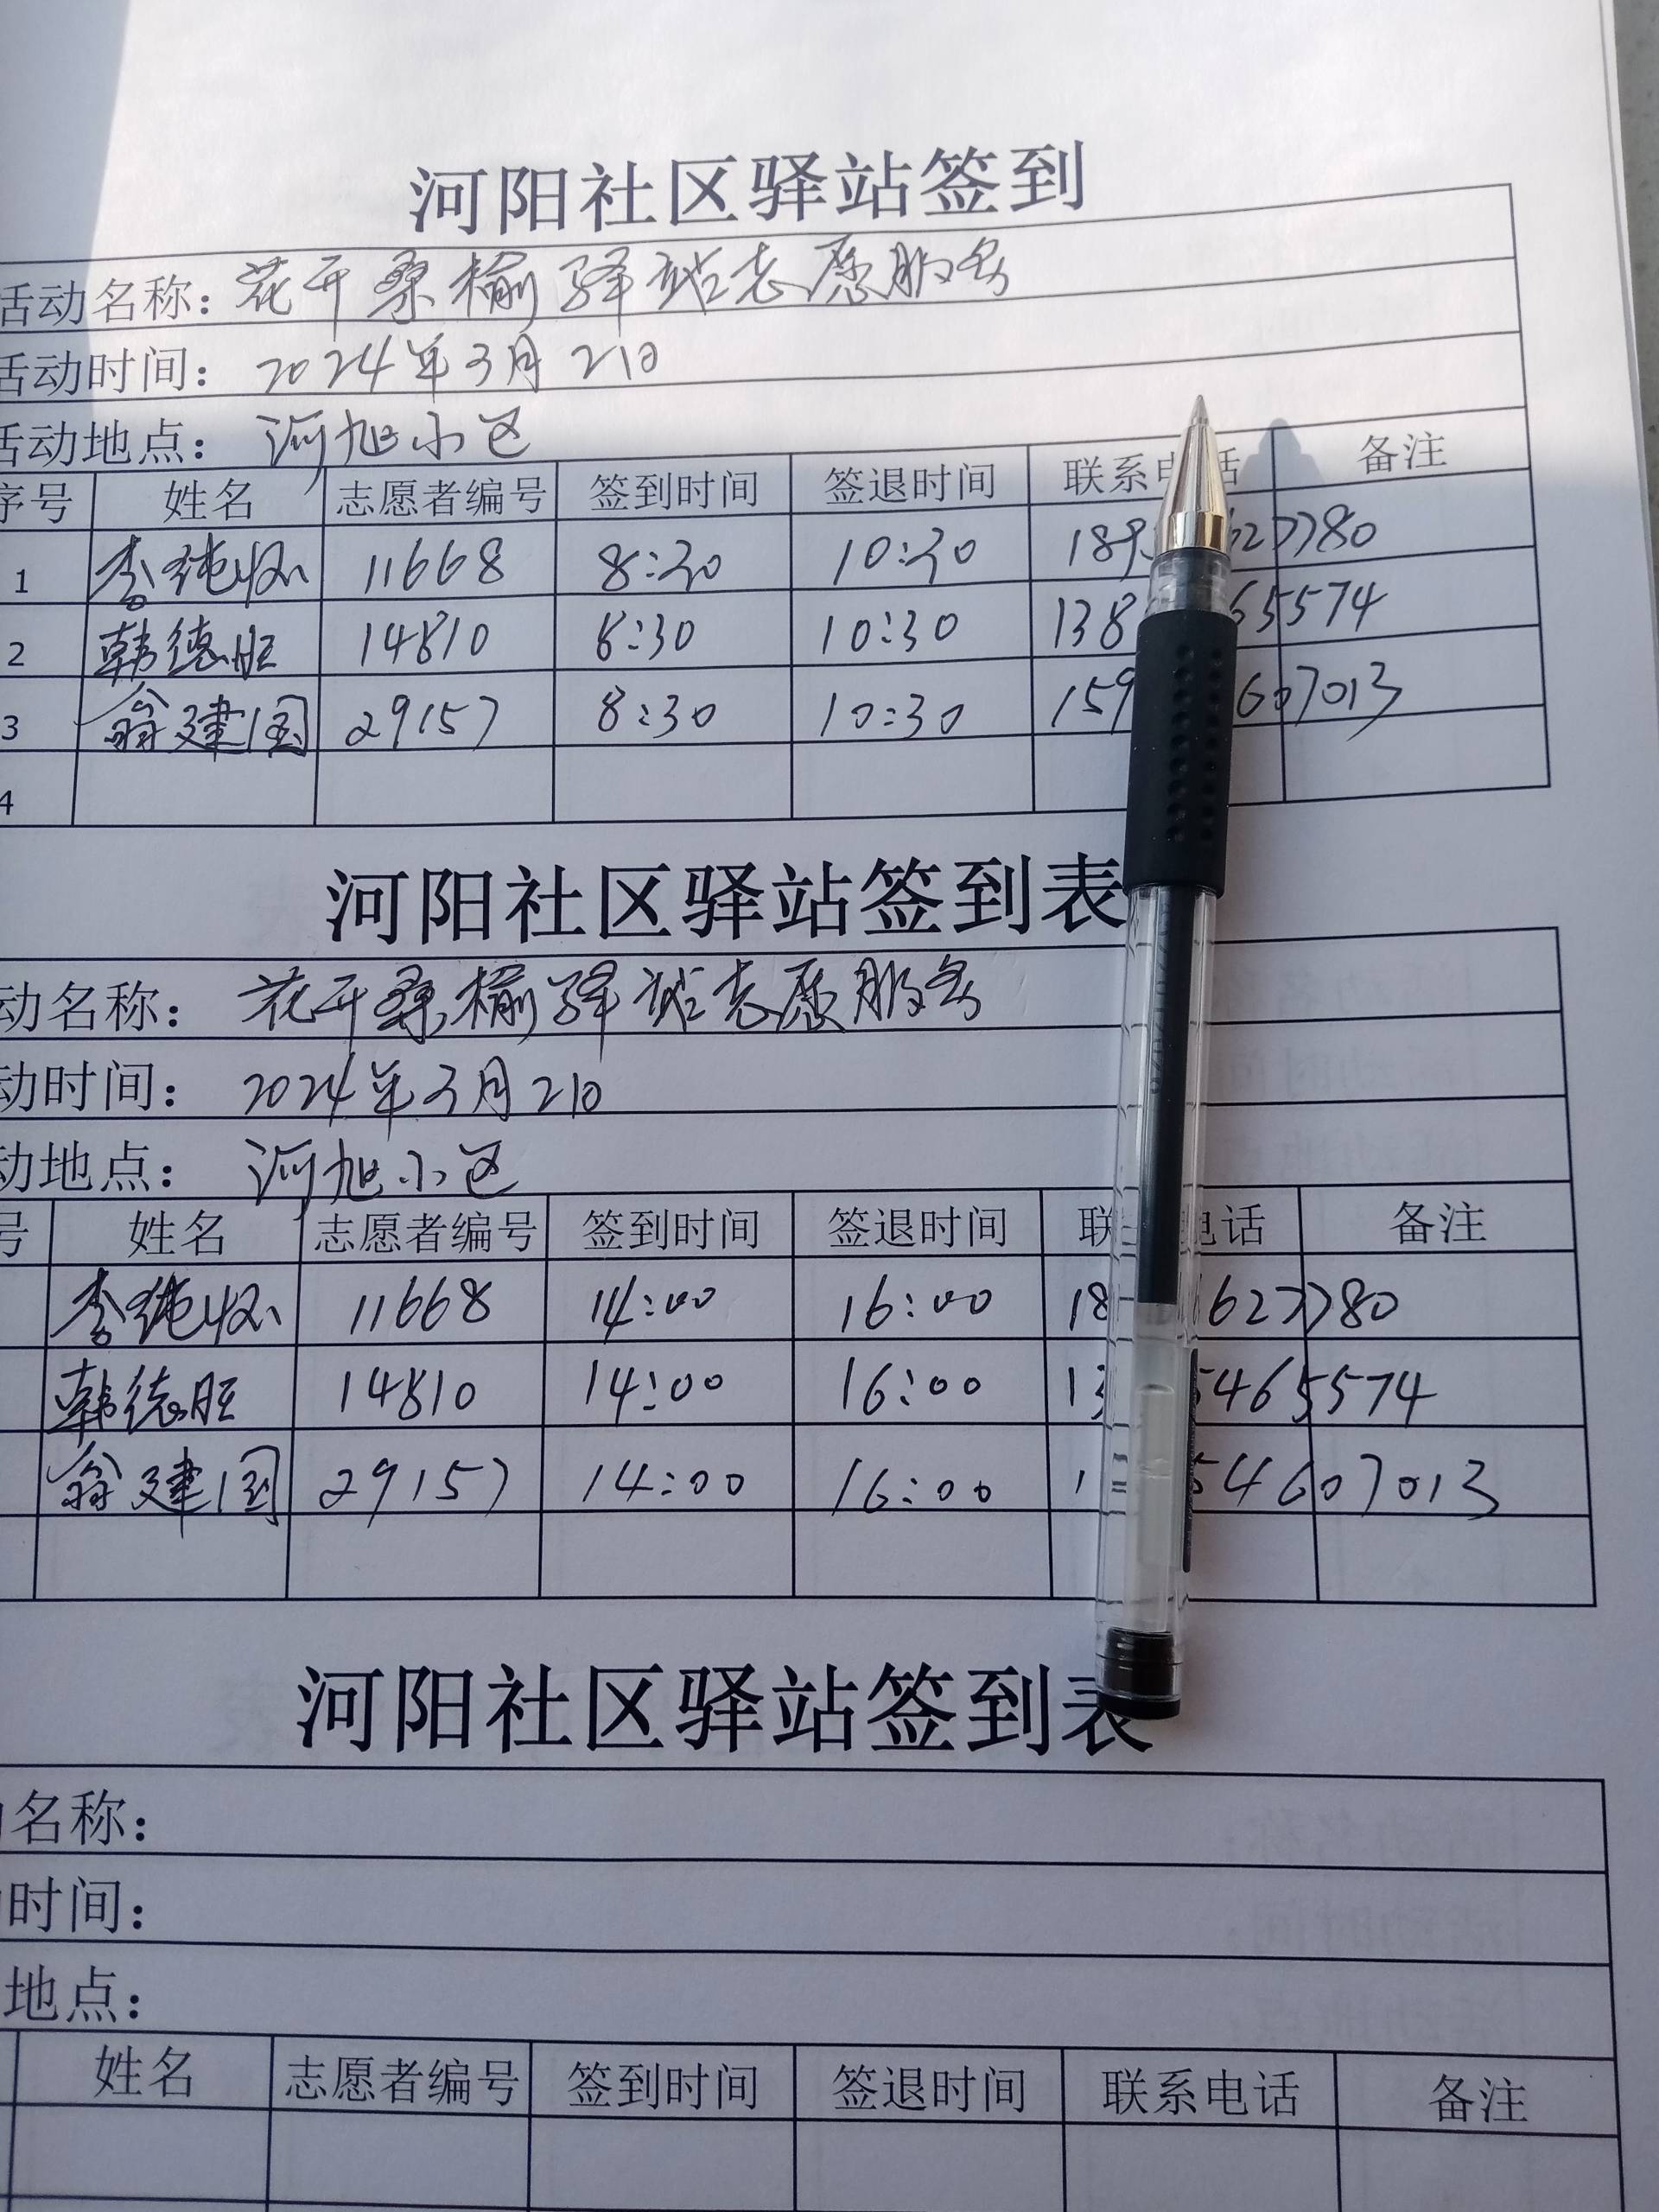 河阳社区驿站签到
活动名称：花开桑榆驿站志愿服务
活动时间：2024年3月21日
活动地点：河旭小区
序号 姓名 志愿者编号 签到时间 签退时间 联系电话 备注
1 李纯 11668 8:30 10:30 189 623780
2 韩德旺 14810 8:30 10:30 138 65574
3 翁建国 29157 8:30 10:30 159 607013
4
河阳社区驿站签到表
动名称：花开桑榆驿站志愿服务
动时间：2024年3月21日
动地点：河旭小区
号 姓名 志愿者编号 签到时间 签退时间 联 电话 备注
李纯 11668 14:00 16:00 18 1623780
韩德旺 14810 14:00 16:00 13 5465574
翁建国 29157 14:00 16:00 1 54607013
河阳社区驿站签到表
名称：
时间：
地点：
姓名 志愿者编号 签到时间 签退时间 联系电话 备注